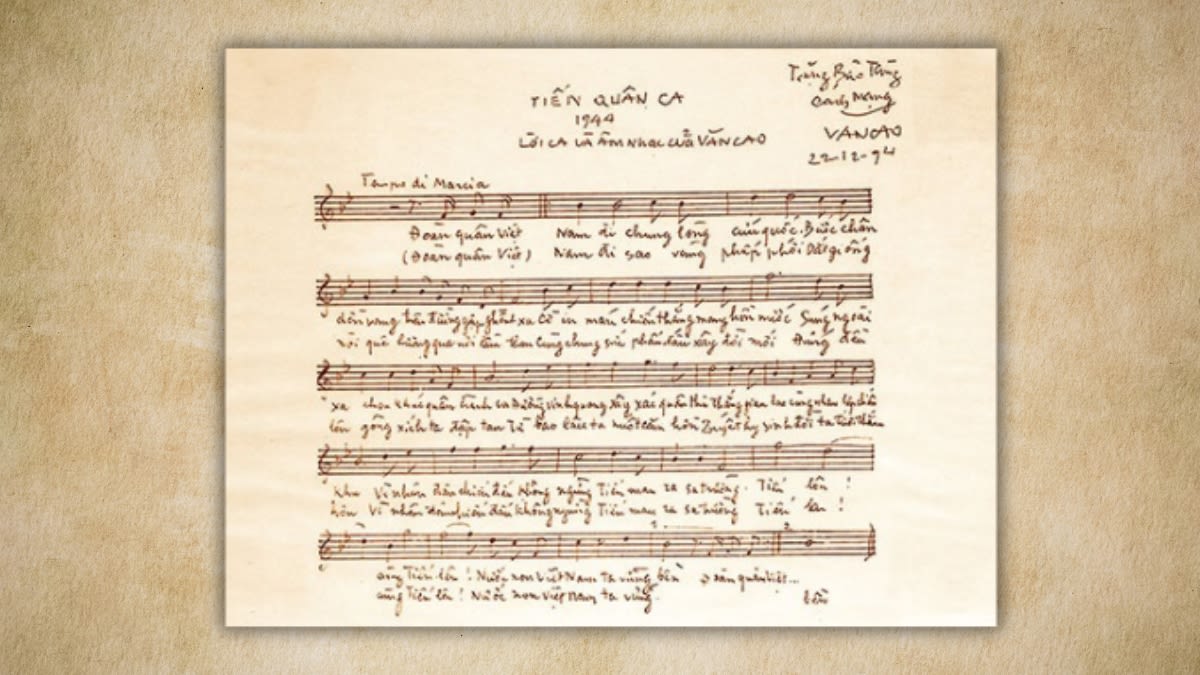 TIẾN QUÂN CA
1944
LỜI CA VÀ ÂM NHẠC CỦA VĂN CAO
Bảo Tàng
Cách Mạng
VĂN CAO
22-12-94
Tempo di Marcia
Đoàn quân Việt Nam đi chung lòng cứu quốc. Bước chân
(Đoàn quân Việt) Nam đi sao vàng phấp phới Dắt giống
dồn vang trên đường gập ghềnh xa Cờ in máu chiến thắng mang hồn nước Súng ngoài
nòi quê hương qua nơi lầm than Cùng chung sức phấn đấu xây đời mới Đứng đều
xa chen khúc quân hành ca Đường vinh quang xây xác quân thù Thắng gian lao cùng nhau lập chiến
lên gông xích ta đập tan Từ bao lâu ta nuốt căm hờn Quyết hy sinh đời ta tươi thắm
khu Vì nhân dân chiến đấu không ngừng Tiến mau ra sa trường. Tiến lên !
hơn Vì nhân dân chiến đấu không ngừng Tiến mau ra sa trường Tiến lên !
cùng Tiến lên ! Nước non Việt Nam ta vững bền Đoàn quân Việt...
cùng Tiến lên ! Nước non Việt Nam ta vững.
bền